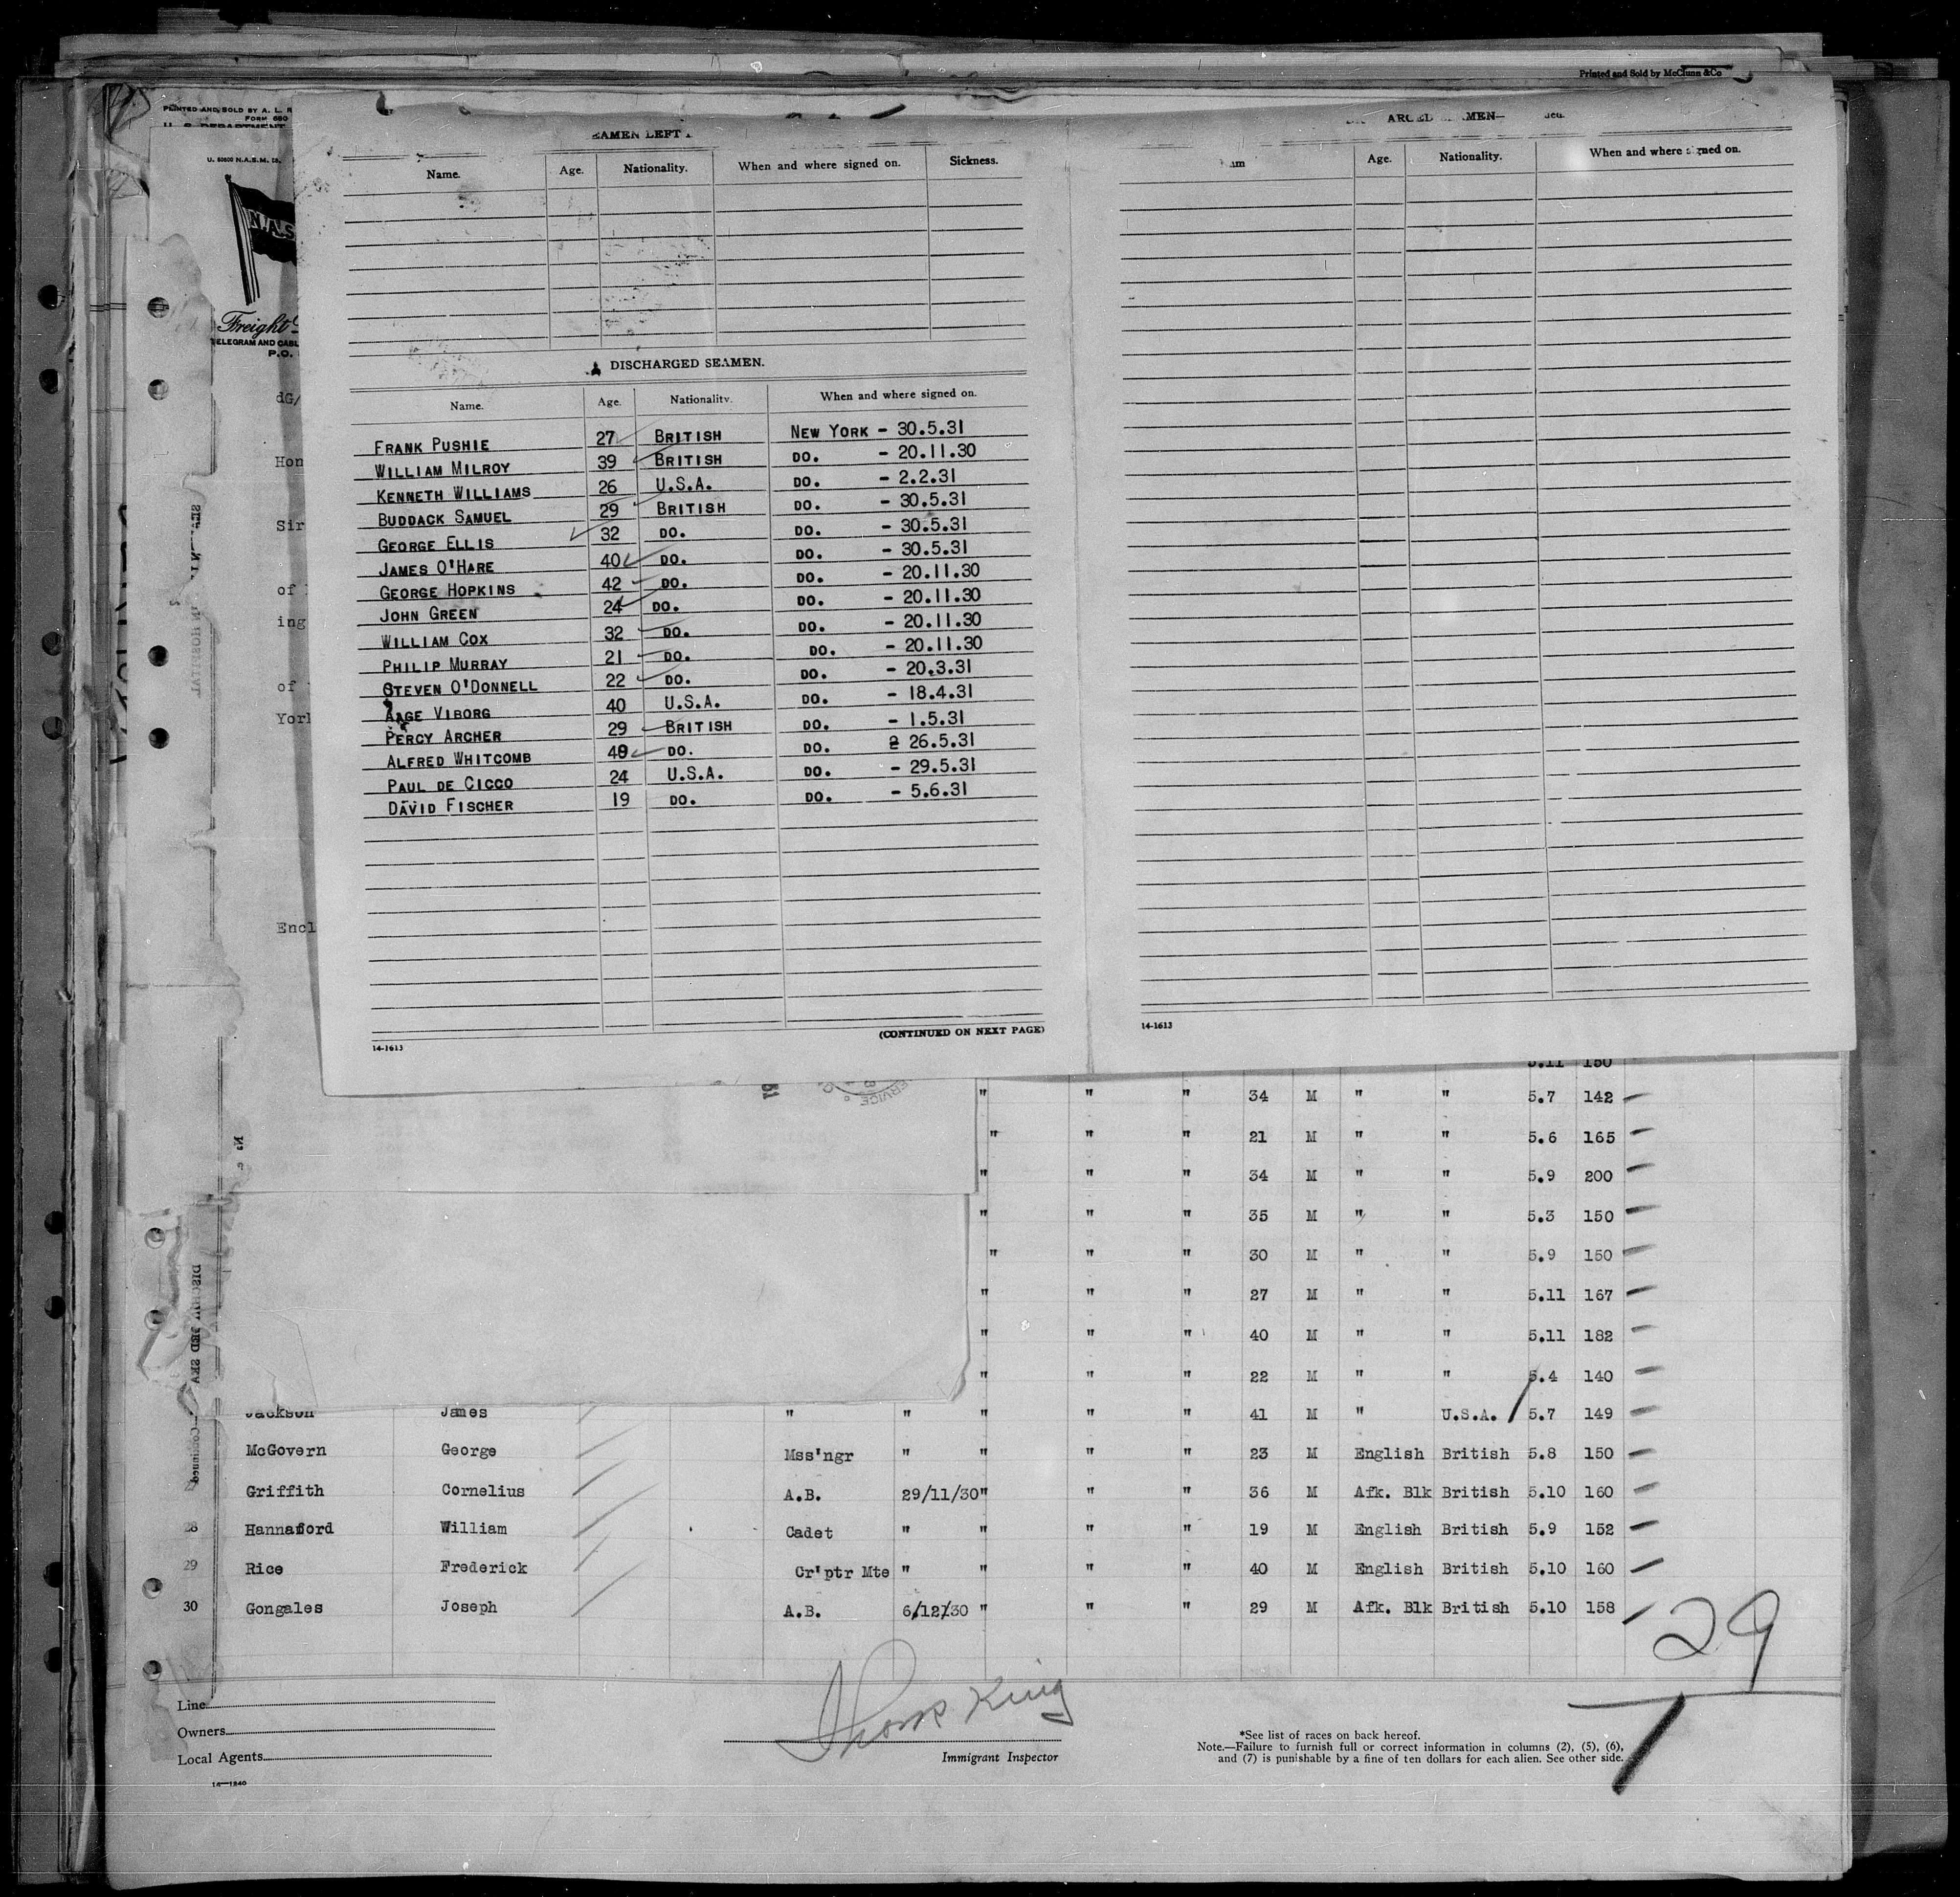 Printed and Sold by McClunn & Co
PRINTED AND SOLD BY A. L. R
FORM 680
U. S. DEPARTMENT
U. 60600 N.A.S.M.
N.A.S
Freight
TELEGRAM AND CABL
P.O.
dG/
Hon
Sir
of
ing
of
York
Encl
SEAMEN LEFT
Name. Age. Nationality. When and where signed on. Sickness.
DISCHARGED SEAMEN.
Name. Age. Nationality. When and where signed on.
FRANK PUSHIE 27 BRITISH NEW YORK - 30.5.31
WILLIAM MILROY 39 BRITISH DO. - 20.11.30
KENNETH WILLIAMS 26 U.S.A. DO. - 2.2.31
BUDDACK SAMUEL 29 BRITISH DO. - 30.5.31
GEORGE ELLIS 32 DO. DO. - 30.5.31
JAMES O'HARE 40 DO. DO. - 30.5.31
GEORGE HOPKINS 42 DO. DO. - 20.11.30
JOHN GREEN 24 DO. DO. - 20.11.30
WILLIAM COX 32 DO. DO. - 20.11.30
PHILIP MURRAY 21 DO. DO. - 20.11.30
STEVEN O'DONNELL 22 DO. DO. - 20.3.31
AAGE VIBORG 40 U.S.A. DO. - 18.4.31
PERCY ARCHER 29 BRITISH DO. - 1.5.31
ALFRED WHITCOMB 40 DO. DO. 26.5.31
PAUL DE CICCO 24 U.S.A. DO. - 29.5.31
DAVID FISCHER 19 DO. DO. - 5.6.31
(CONTINUED ON NEXT PAGE)
14-1613
ARGED SEAMEN—
Age. Nationality. When and where signed on.
14-1613
5.11 150
" " " 34 M " " 5.7 142
" " " 21 M " " 5.6 165
" " " 34 M " " 5.9 200
" " " 35 M " " 5.3 150
" " " 30 M " " 5.9 150
" " " 27 M " " 5.11 167
" " " 40 M " " 5.11 182
" " " 22 M " " 5.4 140
Jackson James " " " " " 41 M " U.S.A. 5.7 149
McGovern George Mss'ngr " " " " 23 M English British 5.8 150
Griffith Cornelius A.B. 29/11/30 " " " 36 M Afk. Blk British 5.10 160
28 Hannaford William Cadet " " " " 19 M English British 5.9 152
29 Rice Frederick Cr'ptr Mte " " " " 40 M English British 5.10 160
30 Gongales Joseph A.B. 6/12/30 " " " 29 M Afk. Blk British 5.10 158
29
Line
Owners
Local Agents
14—1240
Thomas King
Immigrant Inspector
*See list of races on back hereof.
Note.—Failure to furnish full or correct information in columns (2), (5), (6),
and (7) is punishable by a fine of ten dollars for each alien. See other side.